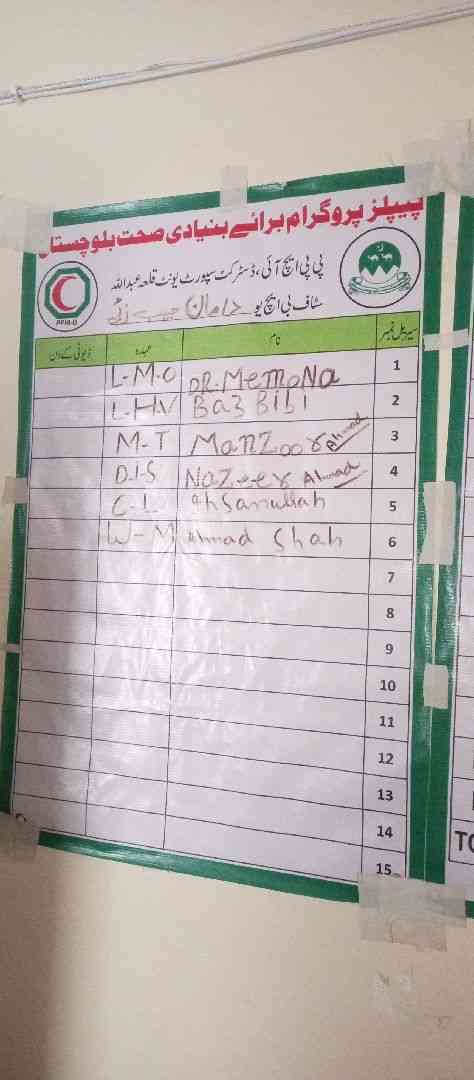 پیپلز پروگرام برائے بنیادی صحت بلوچستان
پی پی ایچ آئی، ڈسٹرکٹ سپورٹ یونٹ قلعہ عبداللہ
سٹاف بی ایچ یو
PPHI-B
سیریل نمبر نام عہدہ ڈیوٹی کے دن
1 DR. MemoNa L-M-O
2 Baz Bibi L-H.V
3 ManZoor Ahmad M-T
4 Nazeer Ahmad D.I.S
5 Ahsanullah C-L
6 Ahmad Shah W-M
7
8
9
10
11
12
13
14
15